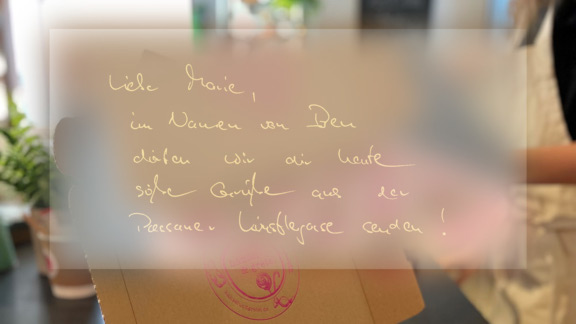 Liebe Marie,
im Namen von Ben
dürfen wir dir heute
süße Grüße aus der
Passauer Künstlergasse senden!